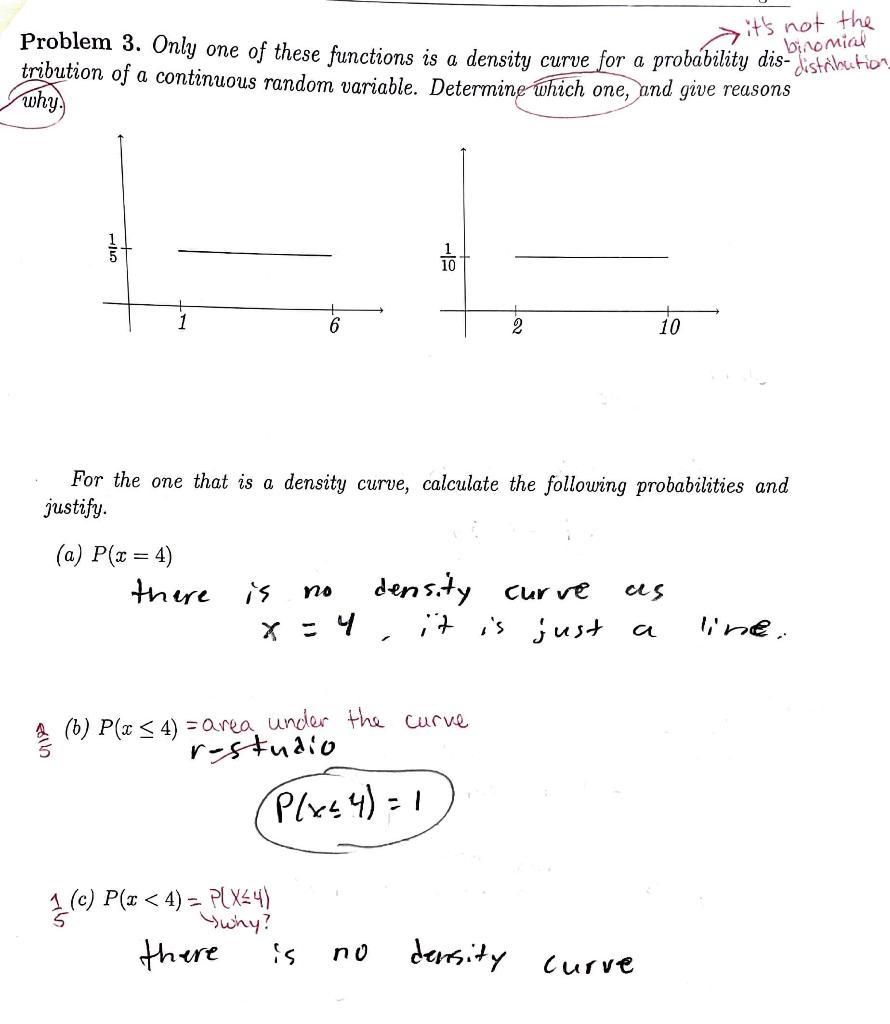 it's not the
binomial
Problem 3. Only one of these functions is a density curve for a probability dis-
distribution
tribution of a continuous random variable. Determine which one, and give reasons
why.
1/5
1
6
1/10
2
10
For the one that is a density curve, calculate the following probabilities and
justify.
(a) P(x = 4)
there is no density curve as
x = 4, it is just a line.
2/5 (b) P(x ≤ 4) = area under the curve
r-studio
P(x≤4) = 1
1/5 (c) P(x < 4) = P(X≤4)
↳why?
there is no density curve